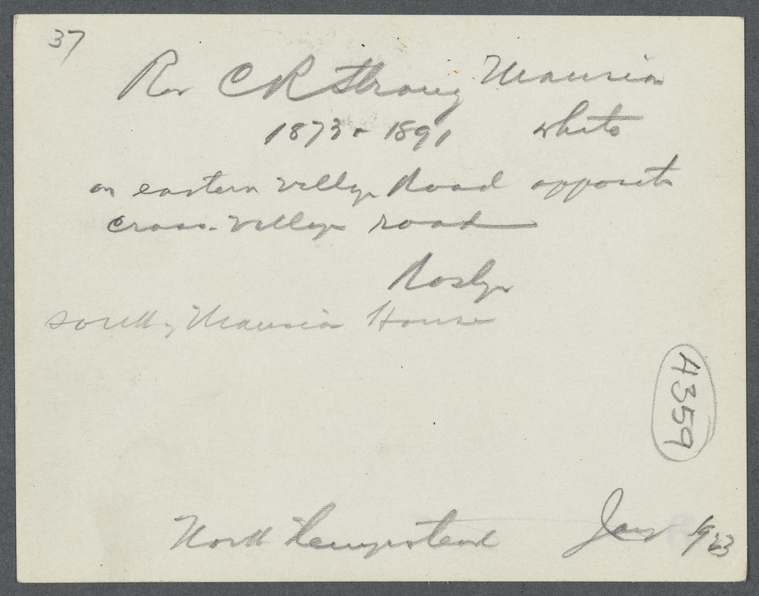 37
Rev C R Strong Mansion
1873 & 1891 white
on eastern village Road opposite
cross village road
Roslyn
south of Mansion House
4359
North Hempstead Jany 1923